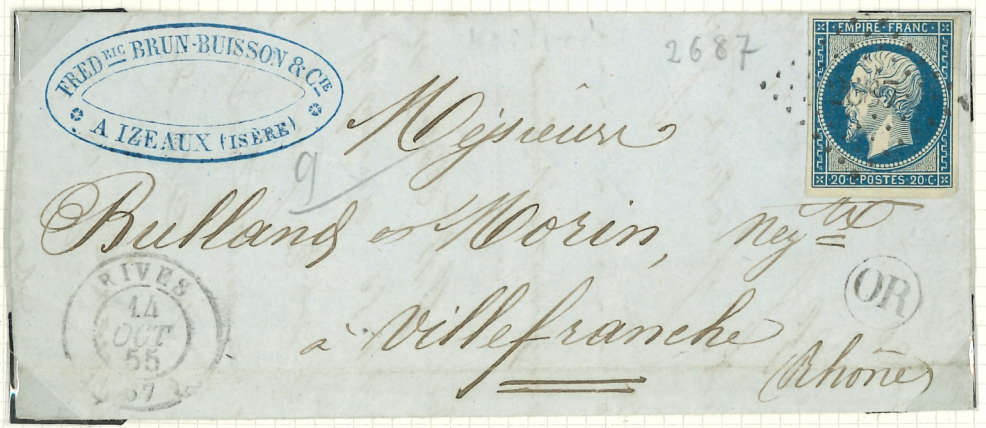 FREDRIC BRUN-BUISSON & CIE
A IZEAUX (ISÈRE)
2687
EMPIRE FRANC
20 C POSTES 20 C
Messieurs
9
Bulland et Morin, Negts
à Villefranche
Rhône
OR
RIVES
14
OCT
55
37